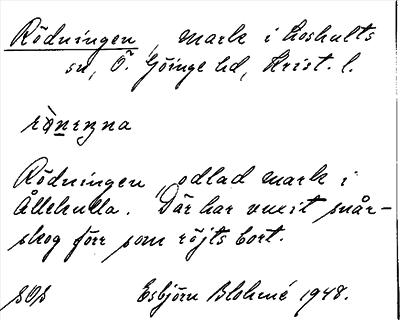 Rödningen, mark i Loshults
sn, Ö. Göinge hd, Krist. l.
Rödningen, odlad mark i
Ållehulla. Där har vuxit snår-
skog förr som röjts bort.
SOS Esbjörn Blohmé 1948.